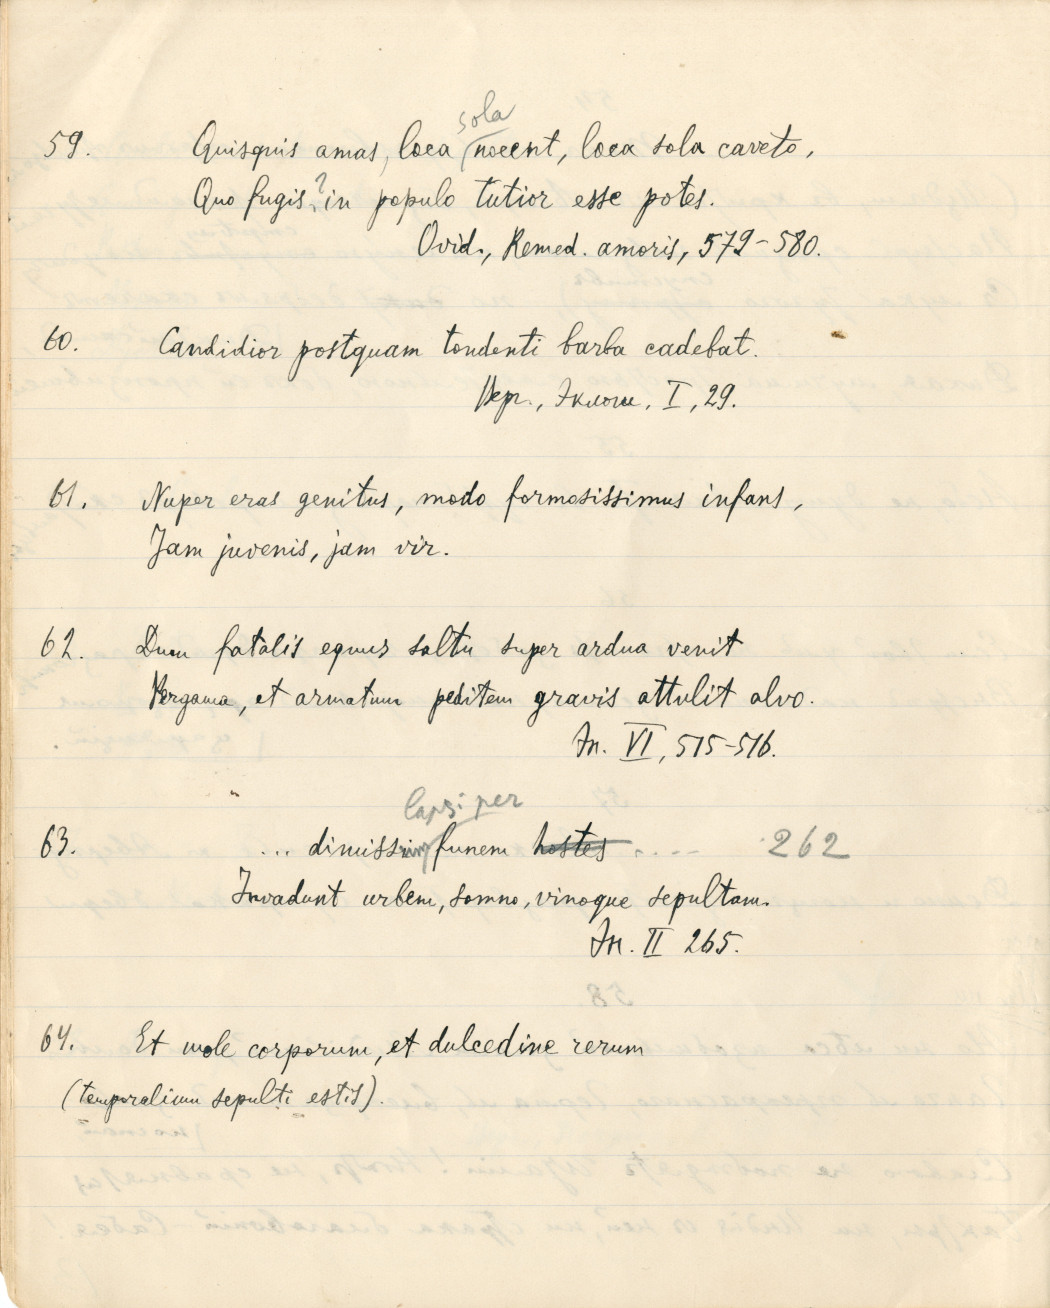 sola
59. Quisquis amas, loca nocent, loca sola caveto,
Quo fugis? in populo tutior esse potes.
Ovid., Remed. amoris, 579-580.
60. Candidior postquam tondenti barba cadebat.
Верг., Эклоги, I, 29.
61. Nuper eras genitus, modo formosissimus infans,
Jam juvenis, jam vir.
62. Dum fatalis equus saltu super ardua venit
Pergama, et armatum peditem gravis attulit alvo.
Эн. VI, 515-516.
lapsi per
63. ... dimissum funem hostes .... 262
Invadunt urbem, somno, vinoque sepultam.
Эн. II 265.
64. Et mole corporum, et dulcedine rerum
(temporalium sepulti estis).